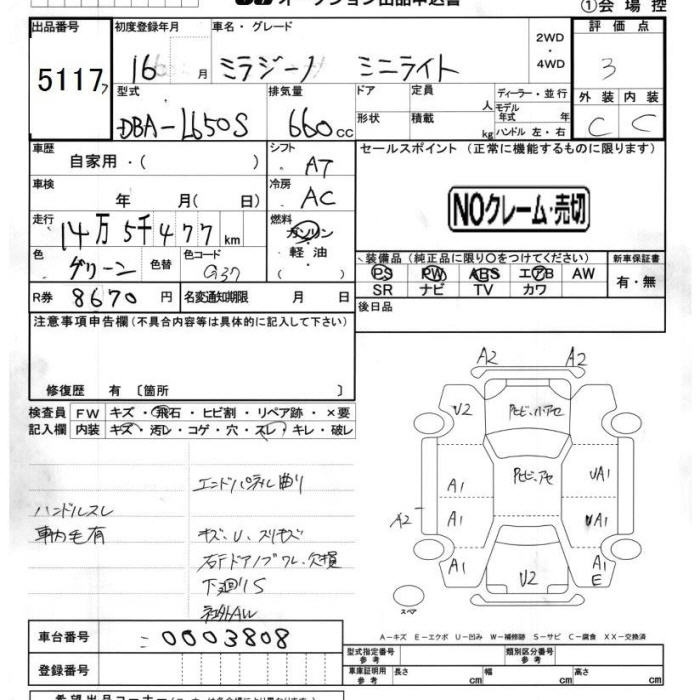 オークション出品申込書
①会場控
出品番号 初度登録年月 車名・グレード 2WD・4WD 評価点
5117 16 月 ミラジーノ ミニライト 3
型式 排気量 ドア 定員 人 ディーラー・並行 外装 内装
DBA-L650S 660cc 形状 積載 kg モデル年式 年 ハンドル 左・右 C C
車歴 シフト セールスポイント (正常に機能するものに限ります)
自家用・( ) AT
車検 冷房
年 月(日) AC NOクレーム・売切
走行 燃料
14万5千477km ガソリン・軽油・( )
色 色替 色コード 装備品(純正品に限り○をつけてください) 新車保証書
グリーン G37 PS PW ABS エアB AW 有・無
SR ナビ TV カワ
R券 8670円 名変通知期限 月 日 後日品
注意事項申告欄(不具合内容等は具体的に記入して下さい)
修復歴 有 〔箇所 〕
検査員 FW キズ・飛石・ヒビ割・リペア跡・×要
記入欄 内装 キズ・汚レ・コゲ・穴・スレ・キレ・破レ
エンドパネル曲り
ハンドルスレ
車内毛有 キズ、U、スリキズ
右Fドアノブワレ、欠損
下廻りS
社外AW
A2 A2
U2
A1 UA1
A2 A1 UA1
A1 U2 A1
E
スペア
A-キズ E-エクボ U-凹み W-補修跡 S-サビ C-腐食 XX-交換済
車台番号 0003808
登録番号
型式指定番号 参考 類別区分番号 参考
車庫証明用 参考 長さ cm 幅 cm 高さ cm
希望出品コーナー